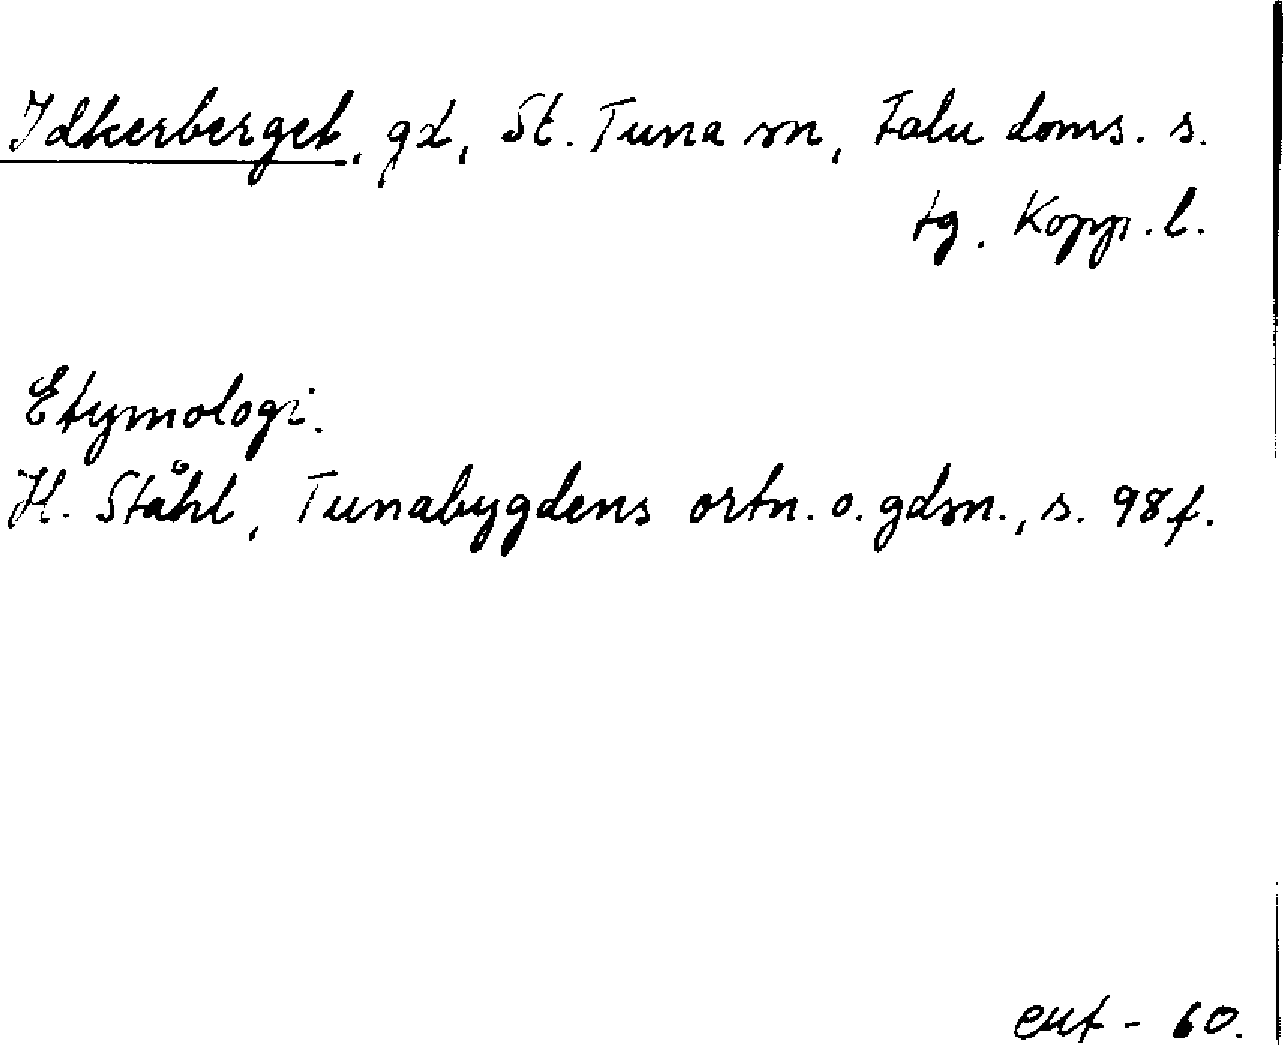 Idkerberget, gd, St. Tuna sn, Falu doms. s.
tg. Kopp. l.
Etymologi.
H. Ståhl, Tunabygdens ortn. o. gdsn., s. 98 f.
- 60.